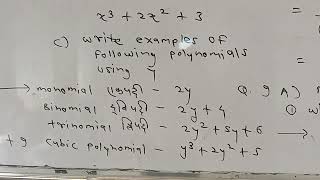 x³ + 2x² + 3
c) write examples of
following polynomials
using y
→ monomial एकपदी - 2y
Binomial द्विपदी - 2y + 4
trinomial त्रिपदी - 2y² + 5y + 6 →
+ 9 cubic polynomial - y³ + 2y² + 5
=
=
Q. 9 A)
① w